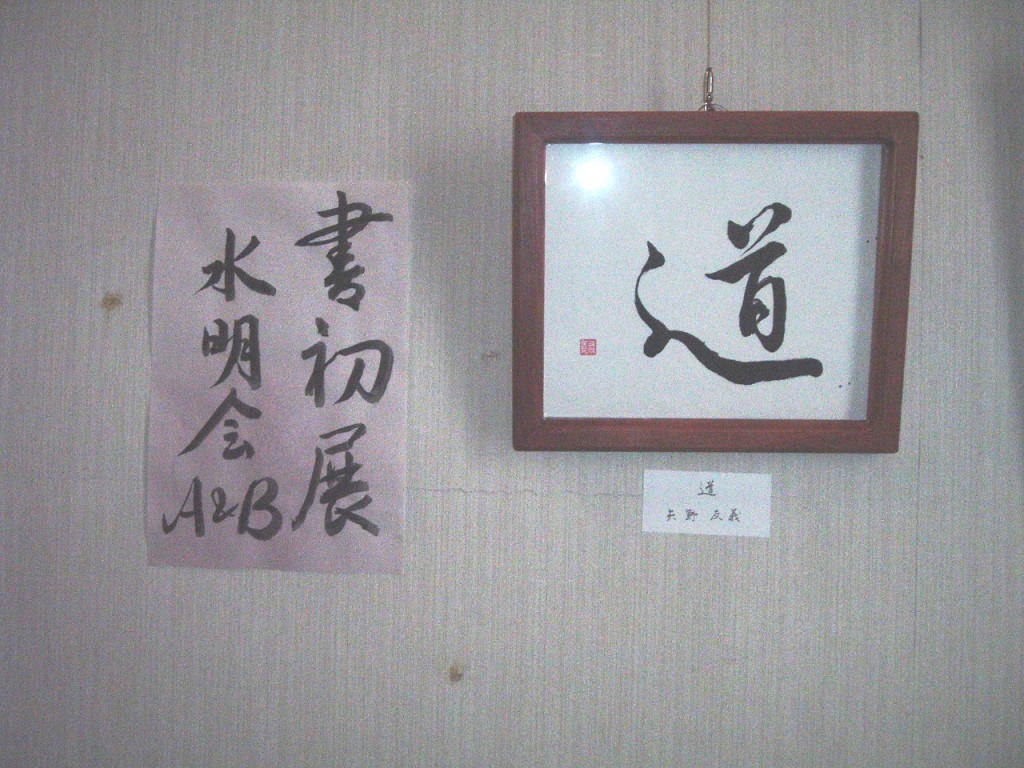 書初展
水明会
A&B
道
道
矢野 友義